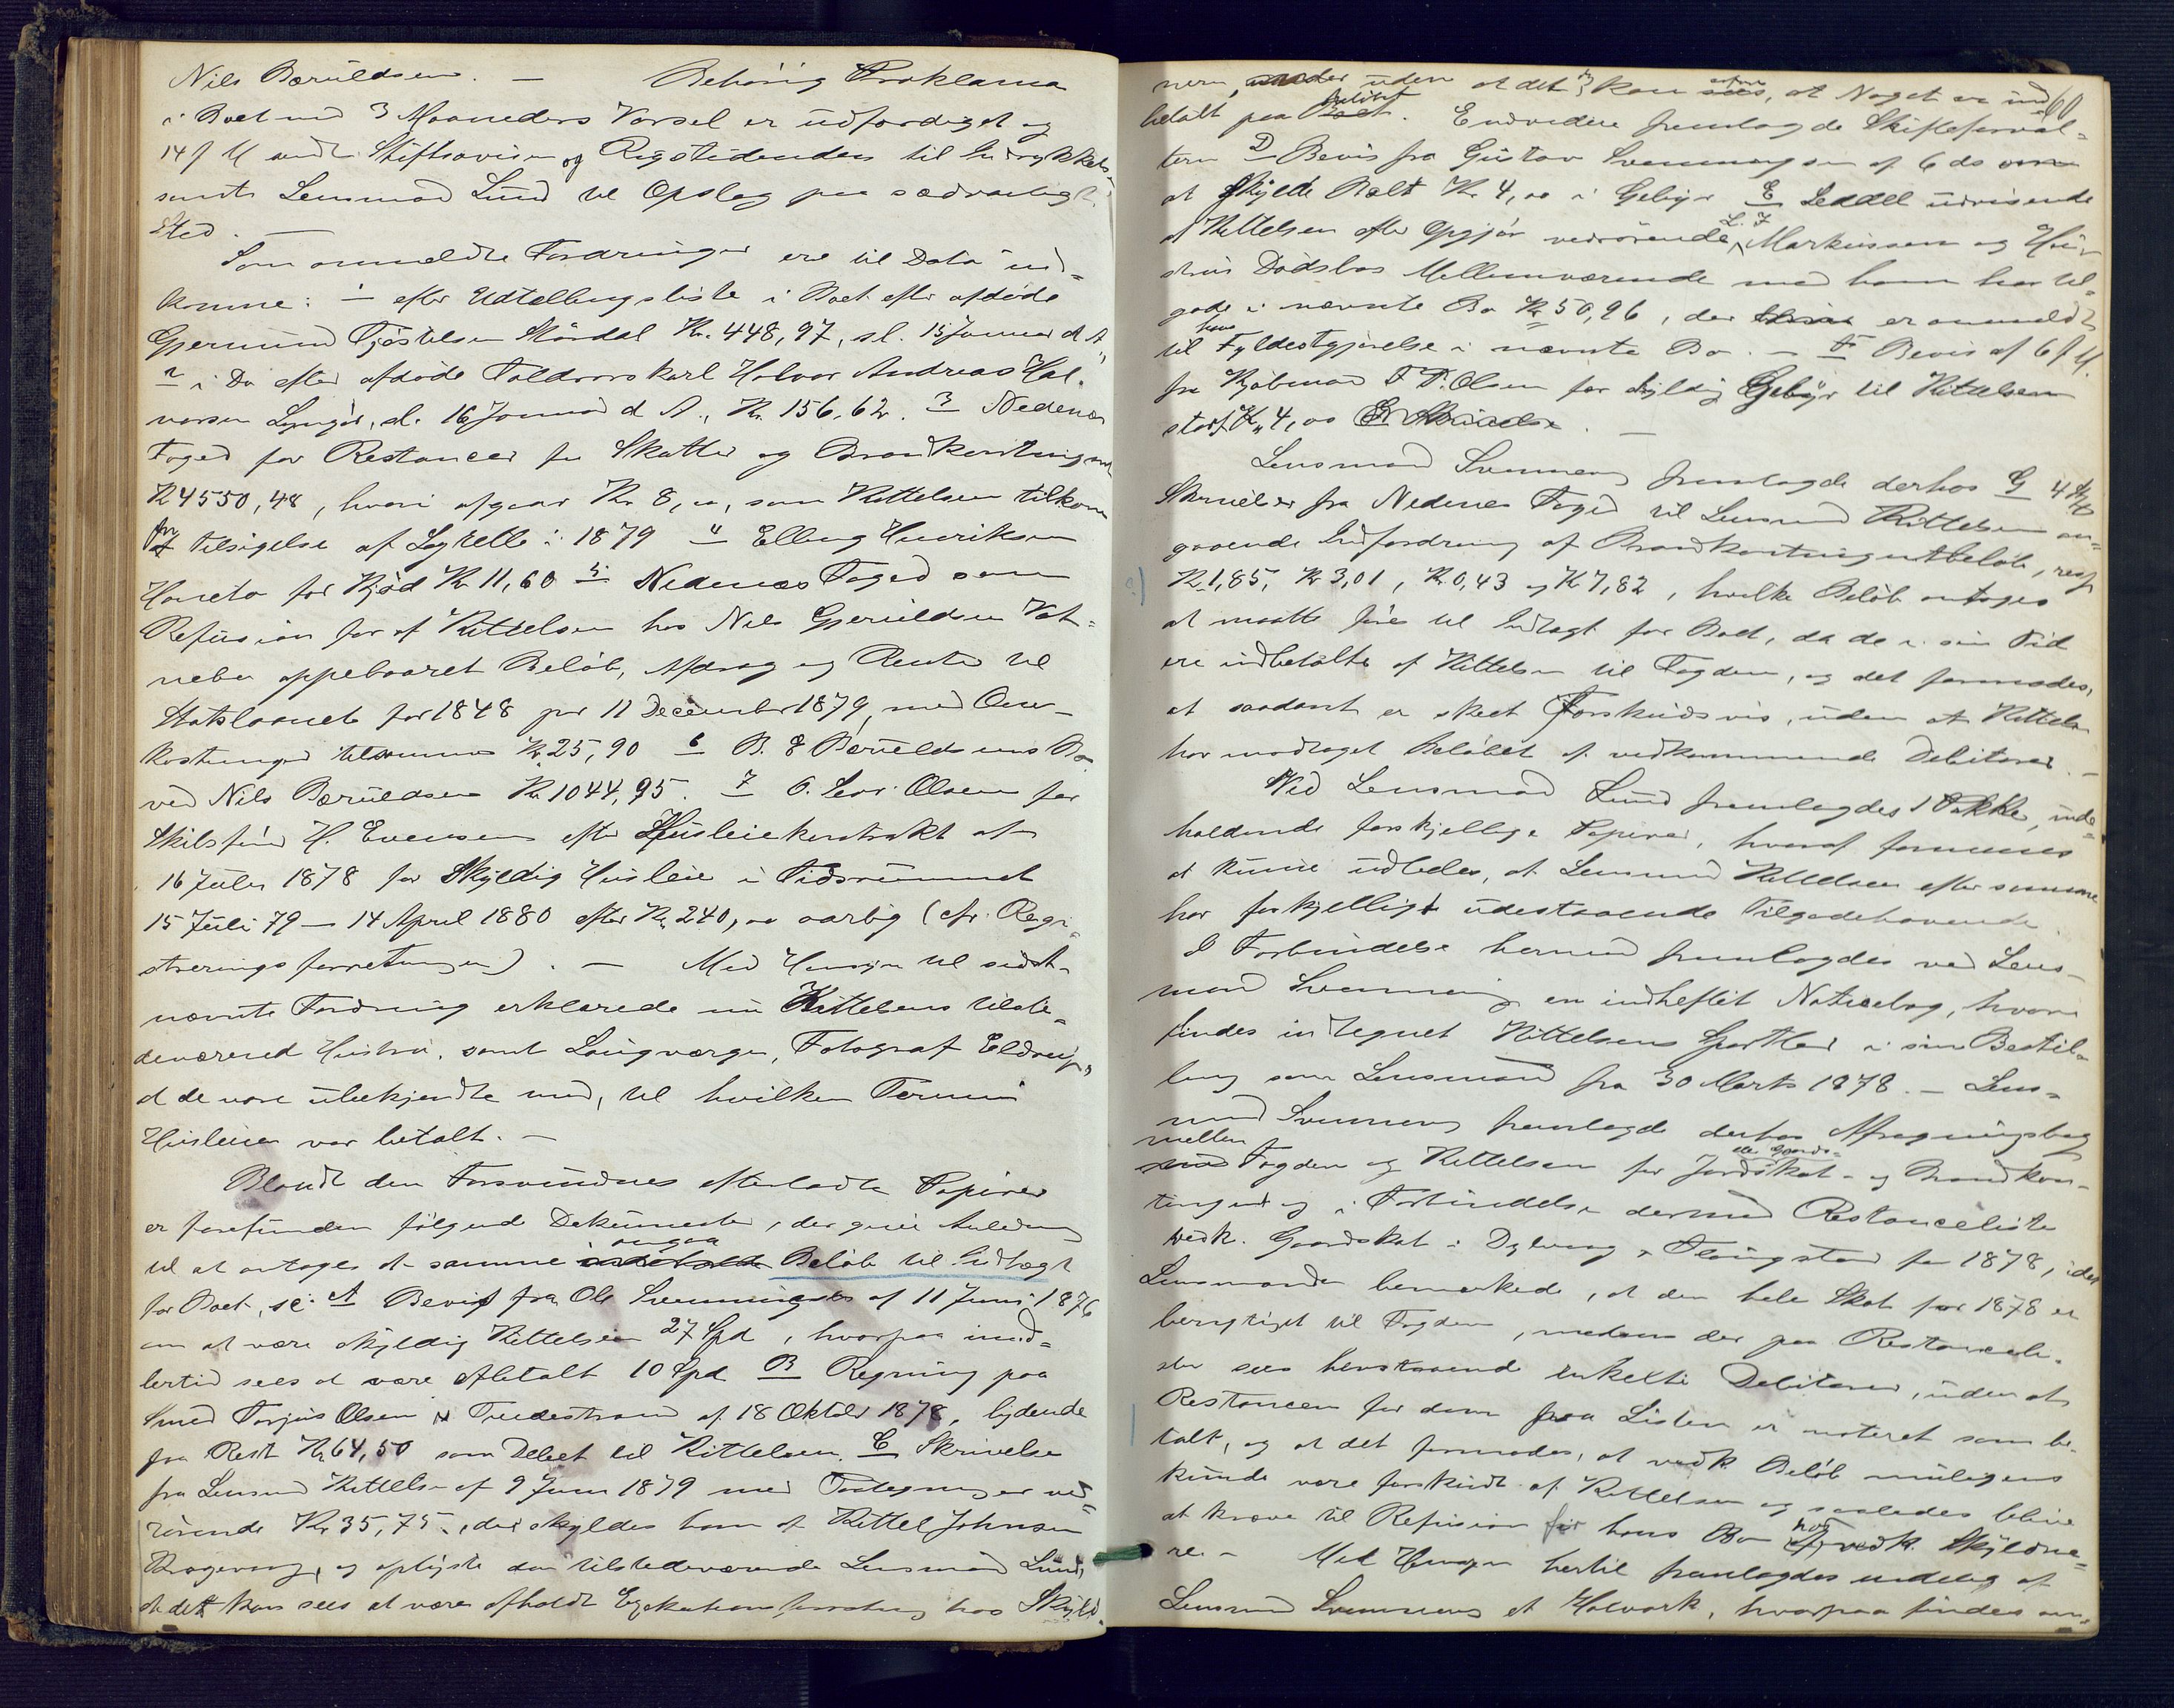 Nils Bærulfdsen. — Behørig Proklama
i Boet med 3 Maaneders Varsel er udfærdiget og
14 f M sendt Stiftsavisen og Rigstidenden til Indrykkelse
samt Lensmand Lund til Opslag paa sædvanligt
Sted. —
Som anmeldte Fordringer ere til Dato ind-
komne: 1 efter Udtællingsliste i Boet efter afdøde
Gjermund Tjøstelsen Mårdal Kr. 448,97, sl. 15 Januar d A,
2 i Do efter afdøde Toldrorskarl Halvor Andreas Hal-
vorsen Lyngør, sl. 16 Januar d A., Kr. 156,62. 3 Nedenæs
Foged for Restancer for Skatter og Brandkontingent
Kr 4550,48, hvori afgaar Kr 8,00, som Kittelsen tilkom
for Tilsigelse af Lagrette i 1879 4 Elling Henriksen
Haneto for Kjød Kr 11,60 5 Nedenæs Foged som
Refusion for af Kittelsen hos Nils Gjeruldsen Vat-
nebu oppebaaret Beløb, Afdrag og Rente til
Statslaanet for 1848 pr 11 December 1879, med Om-
kostninger tilsammen Kr 25,90 6 B. & Bæruldsens Bo
ved Nils Bæruldsen Kr. 1044,95. 7 O. Lor. Olsen for
Skibsfører H. Evensen efter Husleiekontrakt af
16 Juli 1878 for skyldig Husleie i Tidsrummet
15 Juli 79 — 14 April 1880 efter Kr. 240,00 aarlig (cfr. Regi-
streringsforretningen). — Med Hensyn til sidst-
nævnte Fordring erklærede nu Kittelsens tilste-
deværende Hustru, samt Laugværge, Fotograf
at de vare ubekjendte med, til hvilken Termin
Husleien var betalt. —
Blandt den Forsvundnes efterladte Papirer
er forefunden følgende Dokumenter, der give Anledning
til at antages at samme angaa Beløb til Indtægt
for Boet, sc: A Bevis fra Ole Svenningsen af 11 Juni 1876
om at være skyldig Kittelsen 27 Spd, hvorpaa imid-
lertid sees at være afbetalt 10 Spd B Regning paa
Smed Torjus Olsen Tvedestrand af 18 Oktober 1878, lydende
paa Rest Kr 64,50 som Debet til Kittelsen. C Skrivelse
fra Lensmand Kittelsen af 9 Juni 1879 med Paategninger ved-
rørende Kr. 35,75, der skyldes ham af Kittel Johnsen
og oplyste den tilstedeværende Lensmand Lund,
at det kan sees at være afholdt Exekutionsforretning hos Skyld-
60
neren, uden at det kan erfares, at Noget er ind-
betalt paa Beløbet. Endvidere fremlagde Skifteforval-
teren D Bevis fra Gustav Svenningsen af 6 ds om
at skylde Boet Kr. 4,00 i Gebyr E Seddel udvisende
at Kittelsen efter Opgjør vedrørende L. F Markussen og Hu-
strus Dødsbos Mellemværende med ham har til-
gode i nævnte Bo Kr 50,96, der er anmeldt
til Fyldestgjørelse i nævnte Bo. — F Bevis af 6 f M.
fra Kjøbmand F. T. Olsen for skyldig Gebyr til Kittelsen
stort Kr. 4,00 —
Lensmand Svenning fremlagde derhos G 4 Stk
Skrivelser fra Nedenæs Foged til Lensmand Kittelsen an-
gaaende Indfordring af Brandkontingentbeløb, resp
Kr 1,85, Kr 3,01, Kr. 0,43 og Kr 7,82, hvilke Beløb antages
at maatte føres til Indtægt for Boet, da de i sin Tid
ere indbetalte af Kittelsen til Fogden, og det formodes,
at saadant er skeet Forskudsvis, uden at Kittelsen
har modtaget Beløbet af vedkommende Debitorer. —
Ved Lensmand Lund fremlagdes 1 Pakke, inde-
holdende forskjellige Papirer, hvoraf formenes
at kunne udledes, at Lensmand Kittelsen efter samme
har forskjelligt udestaaende Tilgodehavende.
I Forbindelse hermed fremlagdes ved Lens-
mand Svenning en indheftet Noticebog, hvori
findes indtegnet Kittelsens Sportler i sin Bestil-
ling som Lensmand fra 30 Marts 1878. — Lens-
mand Svenning fremlagde derhos Afregningsbog
mellem Fogden og Kittelsen for Jordskat- og Brandkon-
tingent og i Forbindelse dermed Restanceliste
vedk. Gaardskat i Dybvaag & Flangstad for 1878, idet
Lensmanden bemærkede, at den hele Skat for 1878 er
berigtiget til Fogden, medens der paa Restanceli-
sten sees henstaaende enkelte Debitorer, uden at
Restancen for dem paa Listen er noteret som be-
talt, og at det formodes, at vedk. Beløb muligens
kunde være forskudt af Kittelsen og saaledes blive
at kræve til Refusion for hans Bo hos vedk. Skyldne-
re. — Med Hensyn hertil fremlagdes endelig af
Lensmand Svenning et Halvark, hvorpaa findes an-